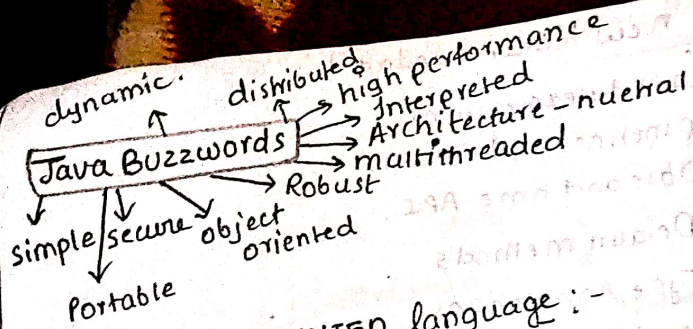 dynamic.
distributed
high performance
Interpreted
Architecture - nuetral
multithreaded
Java Buzzwords
Robust
simple
secure
object
oriented
Portable
language : -